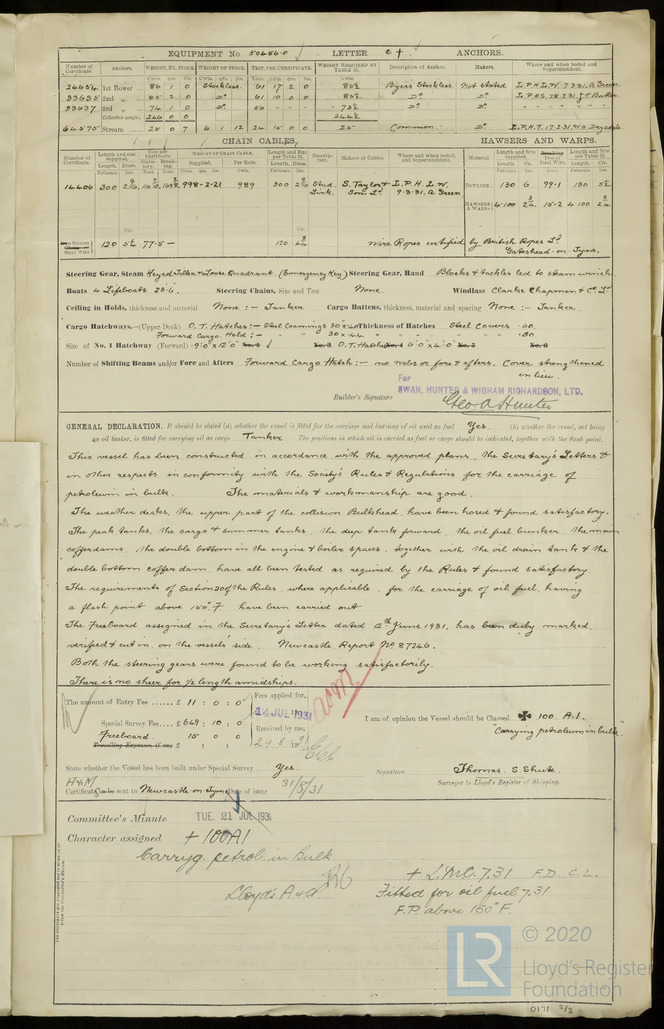 EQUIPMENT No 50456.0 LETTER e † ANCHORS.
Number of Certificate. Anchors. WEIGHT, EX. STOCK WEIGHT OF STOCK. TEST, PER CERTIFICATE. WEIGHT REQUIRED BY TABLE 22. Description of Anchor. Makers. Where and when tested and Superintendent.
24654 1st Bower 86 1 0 Stockless. 61 17 2 0 85½ Byers Stockless. Not stated L.P.H.L.W. 7.3.31. A Green
33635 2nd 85 2 0 Do 61 10 0 0 85½ Do Do L.P.H.S. 28.2.31.
33637 3rd 74 1 0 Do 56 73½ Do Do
Collective weight. 246 0 0
64575 Stream 25 0 7 6 1 12 24 15 0 0 25 Common Do L.P.H.T. 17.2.31.
CHAIN CABLES, HAWSERS AND WARPS.
14406 300 2 9/16 998-2-21 989 300 2 9/16 Stud Link. S. Taylor & Sons Ld. L.P.H.L.W. 9.3.31. A Green TOWLINE. 130 6 99.1 130 5½
HAWSERS & WARPS 4·100 2¾ 15.2 4·100 2¾
120 5½ 77.5 — 120 Wire Ropes certified by British Ropes Ld
Gateshead-on-Tyne.
Steering Gear, Steam Keyed Tiller & Loose Quadrant. (Emergency Key) Steering Gear, Hand Blocks & tackles led to steam winch.
Boats 4 Lifeboats 28.6. Steering Chains, Size and Test None. Windlass Clarke Chapman & Co Ld
Ceiling in Holds, thickness and material None :— Tanker Cargo Battens, thickness, material and spacing None :— Tanker.
Cargo Hatchways.—(Upper Deck) O.T. Hatches :— Steel Coamings 30 x .40 Thickness of Hatches Steel Covers .60.
Forward Cargo Hold :— " " 30 x .44 " " " .30
Size of No. 1 Hatchway (Forward) 9'.0" x 12'.0" No. 2 No. 3 O.T. Hatches No. 4 6'.0" x 4'.0" No. 5 No. 6
Number of Shifting Beams and/or Fore and Afters. Forward Cargo Hatch :— no webs or fore & afters. Cover strengthened
in lieu.
For
SWAN, HUNTER & WIGHAM RICHARDSON, LTD.
Builder's Signature Geo A Hunter
GENERAL DECLARATION. It should be stated (a) whether the vessel is fitted for the carriage and burning of oil used as fuel Yes. (b) whether the vessel, not being
an oil tanker, is fitted for carrying oil as cargo Tanker The positions in which oil is carried as fuel or cargo should be indicated, together with the flash point.
This vessel has been constructed in accordance with the approved plans, the Secretary's Letters &
in other respects in conformity with the Society's Rules & Regulations for the carriage of
petroleum in bulk. The materials & workmanship are good.
The weather decks, the upper part of the collision Bulkhead, have been hosed & found satisfactory.
The peak tanks, the cargo & summer tanks, the deep tank forward, the oil fuel bunker, the main
cofferdams, the double bottom in the engine & boiler spaces, together with the oil drain tank & the
double bottom cofferdam, have all been tested as required by the Rules & found satisfactory
The requirements of Section 20 of the Rules, where applicable, for the carriage of oil fuel, having
a flash point above 150°F have been carried out
The Freeboard assigned in the Secretary's Letter dated 12th June 1931, has been duly marked,
verified & cut in on the vessels' side. Newcastle Report No 87246.
Both the steering gears were found to be working satisfactorily.
There is no sheer for ½ length amidships.
The amount of Entry Fee ...... £ 11 : 0 : 0
Fees applied for,
14 JUL 1931
Special Survey Fee.... £ 649 : 10 : 0
Received by me,
Freeboard 15 0 0
29.8.1931
Travelling Expenses, if any £ : :
I am of opinion the Vessel should be Classed ✠ 100. A.1.
"Carrying petroleum in bulk"
State whether the Vessel has been built under Special Survey Yes.
Signature Thomas. S. Shute.
Surveyor to Lloyd's Register of Shipping.
Certificate to be sent to Newcastle-on-Tyne Date of issue 31/8/31
Committee's Minute TUE. 21 JUL 1931
Character assigned + 100A1
Carryg. petrol. in Bulk
Lloyd's A & C
+ L.M.C. 7.31 F.D. C.L.
Fitted for oil fuel 7.31
F.P. above 150°F.
LR
© 2020
Lloyd's Register
Foundation
0171 2/3